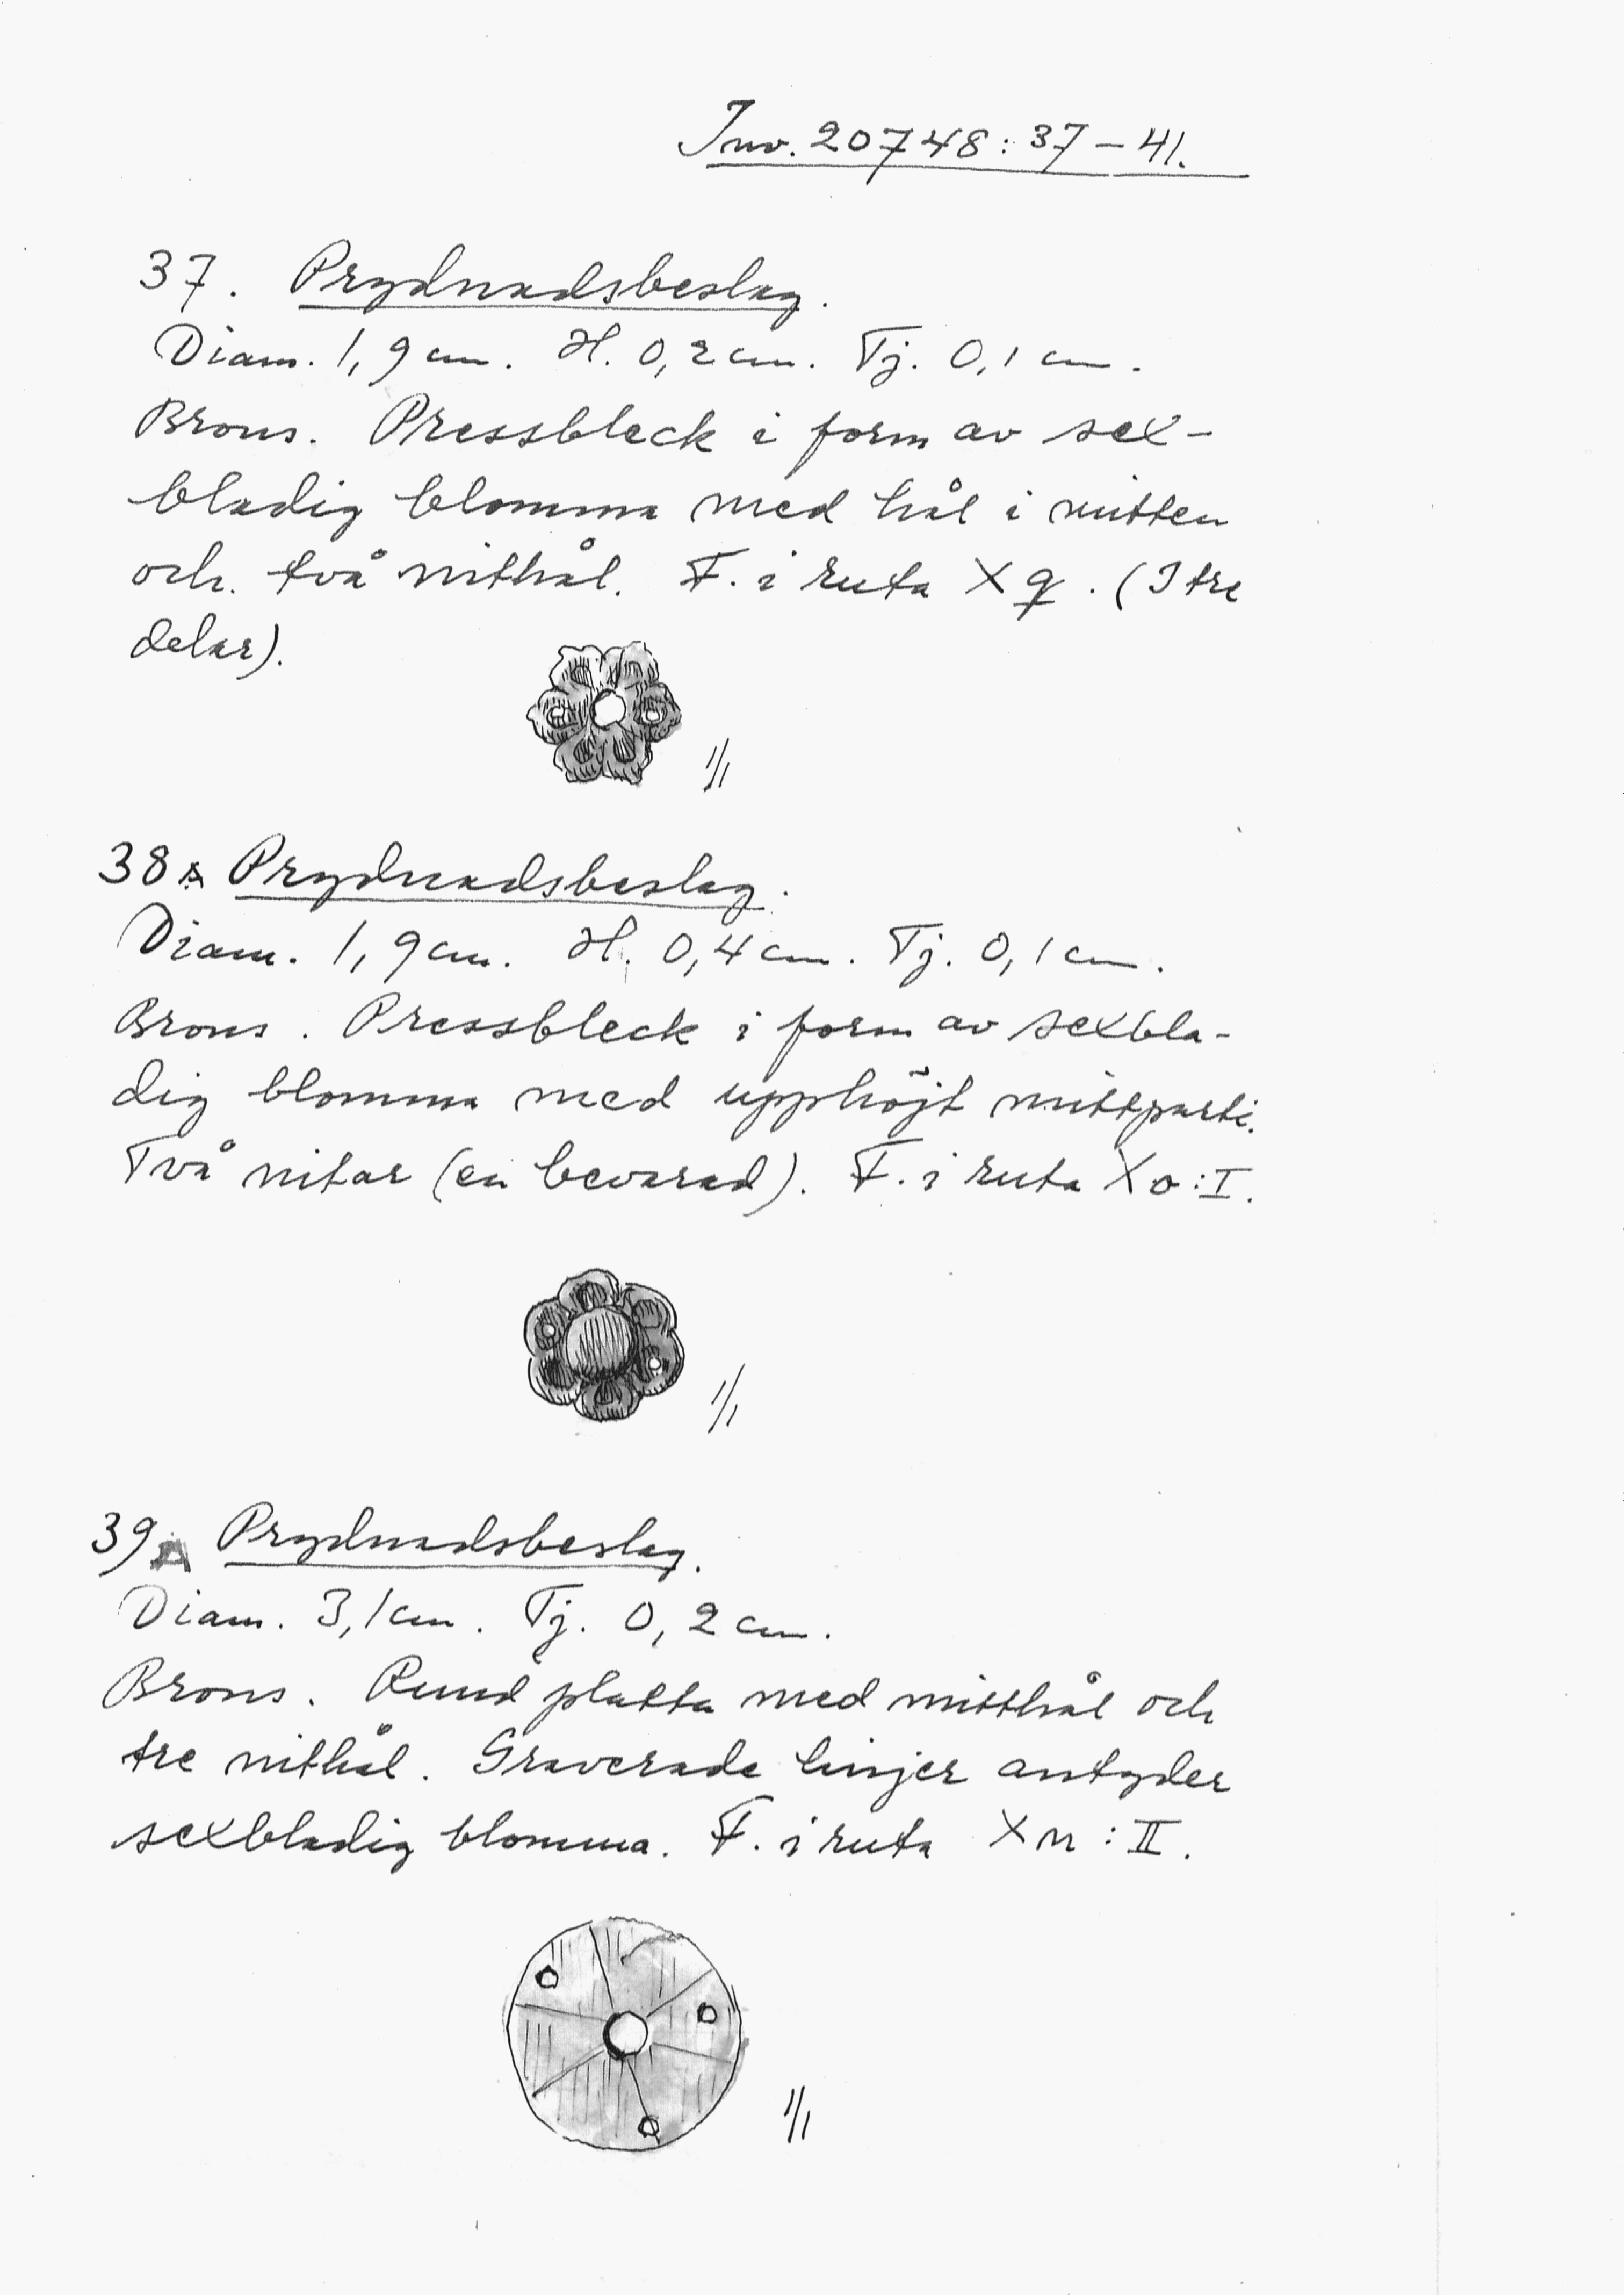 Inv. 20748:37–41.
37. Prydnadsbeslag.
Diam. 1,9 cm. H. 0,2 cm. Tj. 0,1 cm.
Brons. Pressbleck i form av sex-
bladig blomma med hål i mitten
och två nithål. F. i ruta X q. (I tre
delar).
1/1
38A Prydnadsbeslag.
Diam. 1,9 cm. H. 0,4 cm. Tj. 0,1 cm.
Brons. Pressbleck i form av sexbla-
dig blomma med upphöjt mittparti.
Två nitar (en bevarad). F. i ruta X o:I.
1/1
39A Prydnadsbeslag.
Diam. 3,1 cm. Tj. 0,2 cm.
Brons. Rund platta med mitthål och
tre nithål. Graverade linjer antyder
sexbladig blomma. F. i ruta X n:II.
1/1